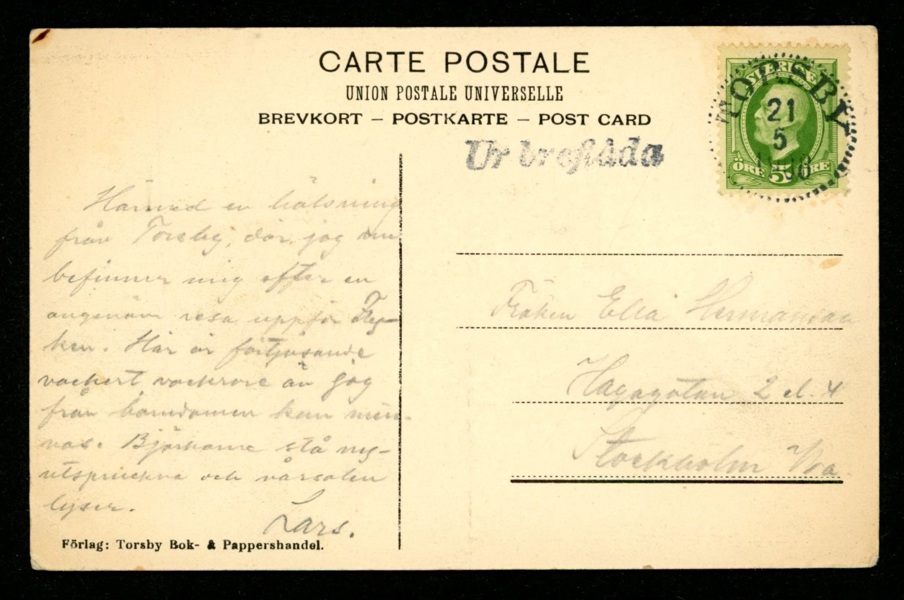 CARTE POSTALE
UNION POSTALE UNIVERSELLE
BREVKORT – POSTKARTE – POST CARD
Ur breflåda
SVERIGE
TORSBY
21
5
5
ÖRE ÖRE
Härmed en hälsning
från Torsby, där jag nu
befinner mig efter en
angenäm resa uppför Fry-
ken. Här är förtjusande
vackert vackrare än jag
från barndomen kan min-
nas. Björkarne stå ny-
utspruckna och vårsolen
lyser.
Lars.
Fröken Ella Hermanson
Hagagatan 2
Stockholm Va.
Förlag: Torsby Bok- & Pappershandel.